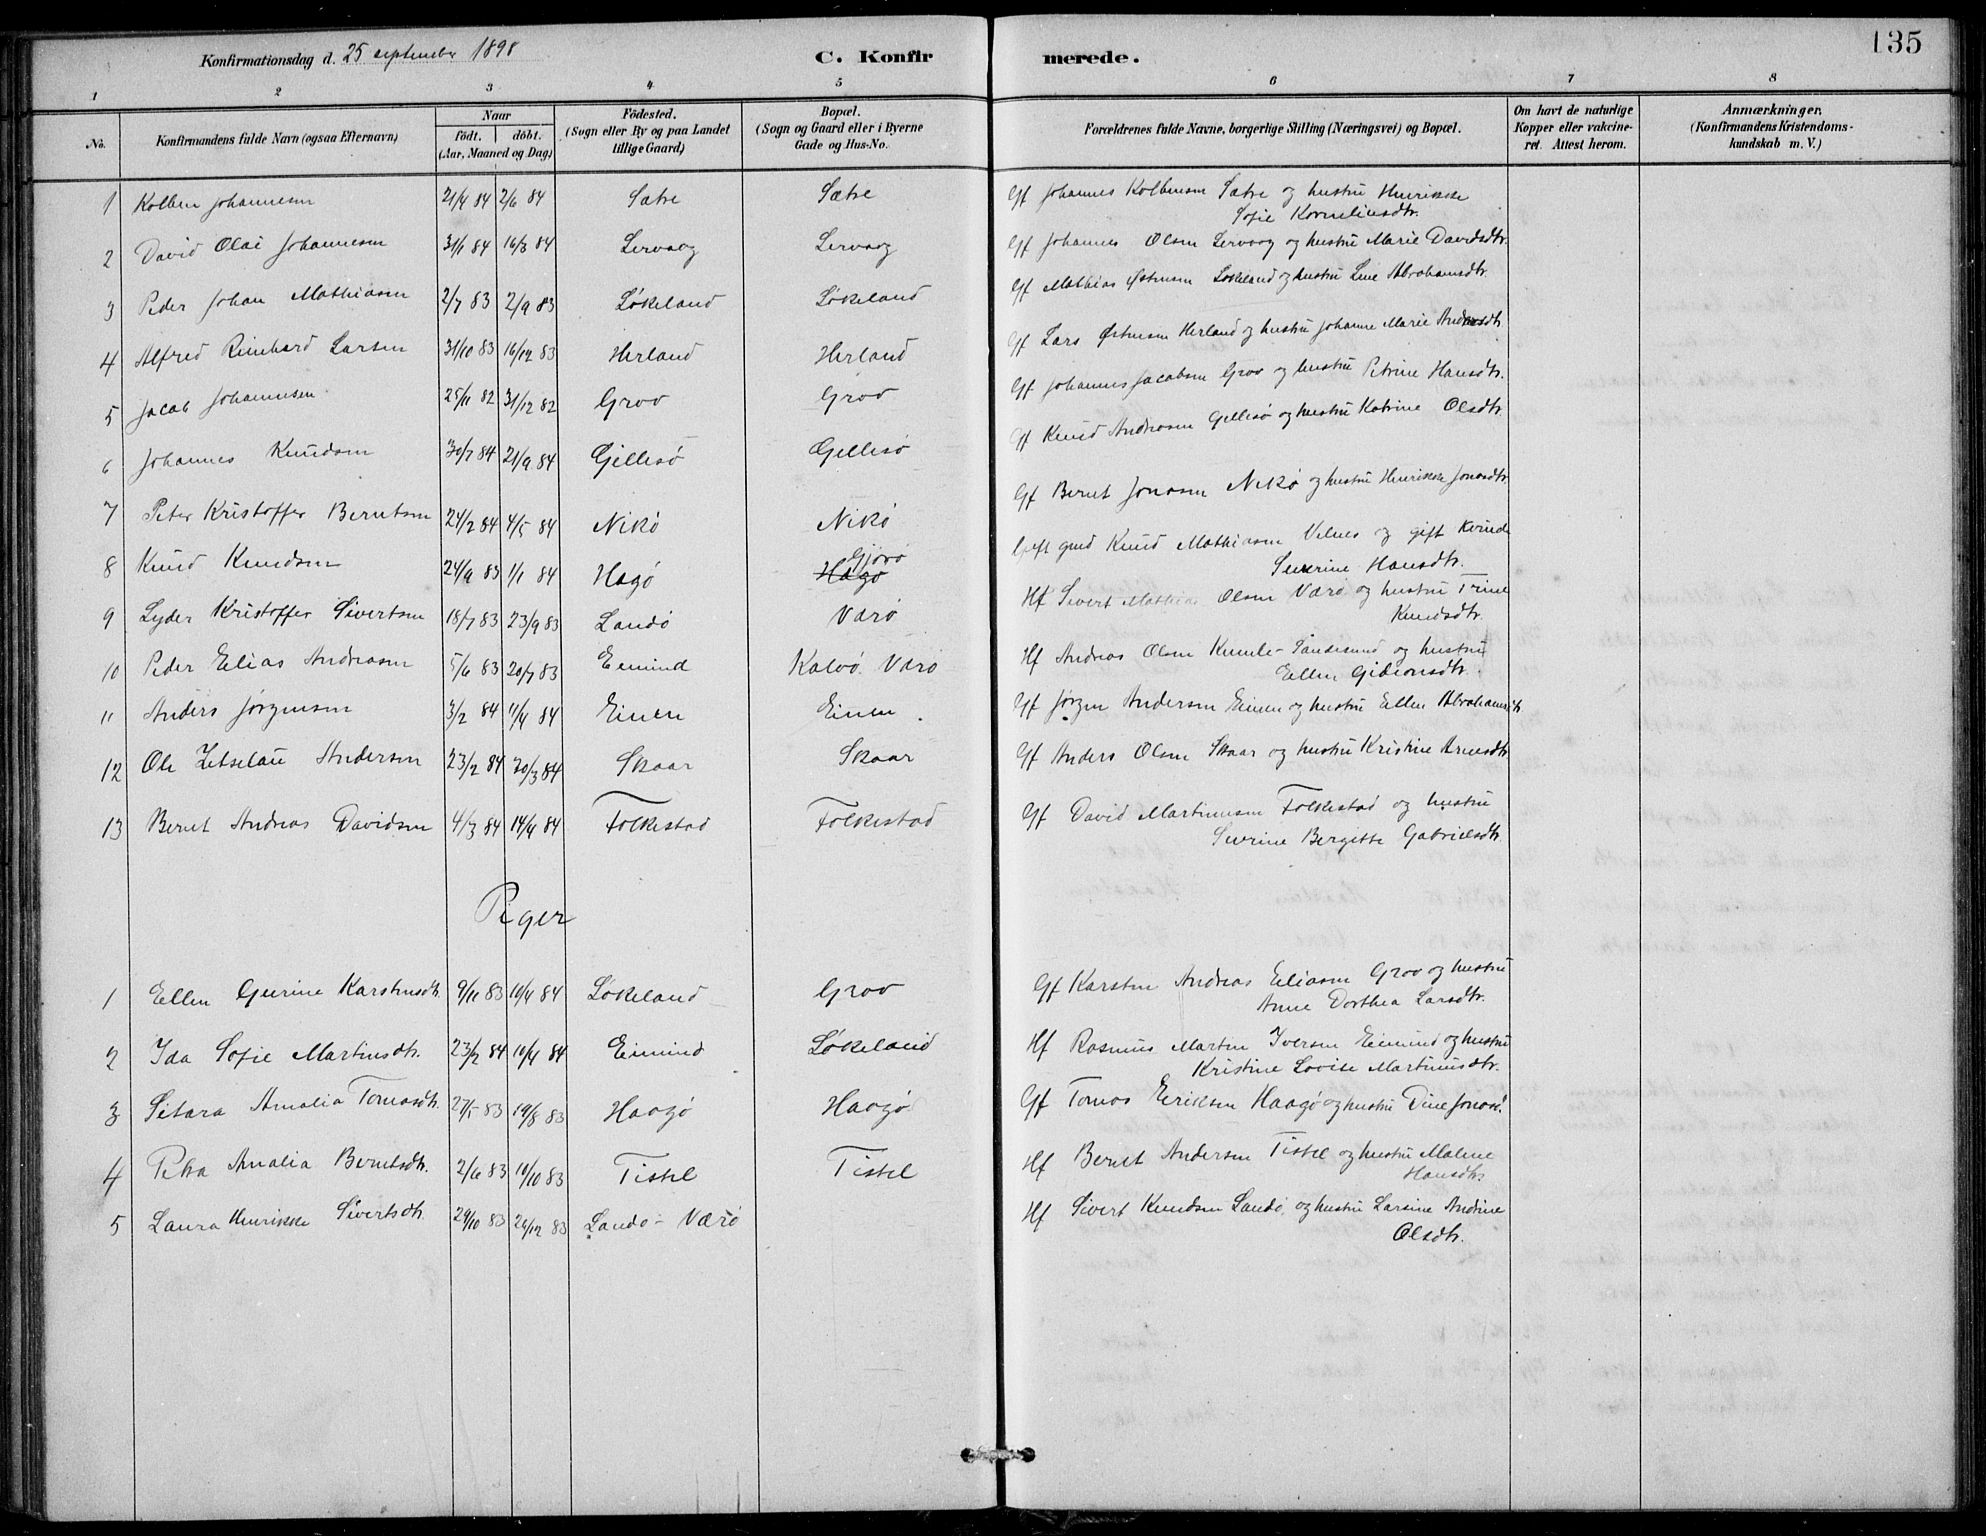 135
Konfirmationsdag d. 25 september 1898
C. Konfirmerede.
1 2 3 4 5 6 7 8
No. Konfirmandens fulde Navn (ogsaa Efternavn) Naar födt. döbt. (Aar, Maaned og Dag) Födested. (Sogn eller By og paa Landet tillige Gaard) Bopæl. (Sogn og Gaard eller i Byerne Gade og Hus-No. Forældrenes fulde Navne, borgerlige Stilling (Næringsvei) og Bopæl. Om havt de naturlige Kopper eller vakcineret. Attest herom. Anmærkninger, (Konfirmandens Kristendomskundskab m. V.)
1 Kolben Johannesen 21/4 84 2/6 84 Sætre Sætre Gf Johannes Kolbensen Sætre og hustru Henrikke
Sofie Korneliusdtr.
2 David Olai Johannesen 31/1 84 16/3 84 Lervaag Lervaag Gf Johannes Olsen Lervaag og hustru Marie Davidsdtr.
3 Peder Johan Mathiasen 2/7 83 2/9 83 Løkeland Løkeland Gf Mathias Østensen Løkeland og hustru Line Abrahamsdtr.
4 Alfred Reinhard Larsen 31/10 83 16/12 83 Herland Herland Gf Lars Østensen Herland og hustru Johanne Marie Andersdtr
5 Jacob Johannesen 25/11 82 31/12 82 Grov Grov Gf Johannes Jacobsen Grov og hustru Petrine Hansdtr.
6 Johannes Knudsen 30/7 84 21/9 84 Gillesø Gillesø Gf Knud Andreasen Gillesø og hustru Katrine Olsdtr.
7 Peter Kristoffer Berntsen 24/2 84 4/5 84 Nikø Nikø Gf Bernt Jonasen Nikø og hustru Henrikke Jonasdtr.
8 Knud Knudsen 24/9 83 1/1 84 Hagø Hagø Gjørø Gift gmd Knud Mathiasen Velnes og gift Kvinde
Severine Hansdtr.
9 Lyder Kristoffer Sivertsen 18/7 83 23/9 83 Landø Værø Hf Sivert Mathias Olsen Værø og hustru Trine
Knudsdtr.
10 Peder Elias Andreasen 5/6 83 20/7 83 Eimind Kalvø Værø Hf Andreas Olsen Kumle-Sandesund og hustru
Ellen Gideonsdtr.
11 Anders Jørgensen 3/2 84 11/4 84 Einen Einen Gf Jørgen Andersen Einen og hustru Ellen Abrahamsdtr
12 Ole Zetselau Andersen 23/2 84 30/3 84 Skaar Skaar Gf Anders Olsen Skaar og hustru Kristine Arnesdtr.
13 Bernt Andreas Davidsen 4/3 84 14/4 84 Folkestad Folkestad Gf David Martinusen Folkestad og hustru
Severine Bergitte Gabrielsdtr.
Piger
1 Ellen Gurine Karstensdtr. 9/11 83 10/4 84 Løkeland Grov Gf Karsten Andreas Eliasen Grov og hustru
Anne Dorthea Larsdtr.
2 Ida Sofie Martinsdtr. 23/2 84 10/4 84 Eimind Løkeland Hf Rasmus Martin Iversen Eimind og hustru
Kristine Lovise Martinusdtr.
3 Petara Amalia Tomasdtr. 27/5 83 19/8 83 Haagø Haagø Gf Tomas Eriksen Haagø og hustru Dine Jonasd.
4 Petra Amalia Berntsdtr. 2/6 83 10/10 83 Tistel Tistel Hf Bernt Andersen Tistel og hustru Malene
Hansdtr.
5 Laura Henrikke Sivertsdtr. 29/10 83 26/12 83 Landø - Værø Hf Sivert Knudsen Landø og hustru Larsine Andrine
Olsdtr.